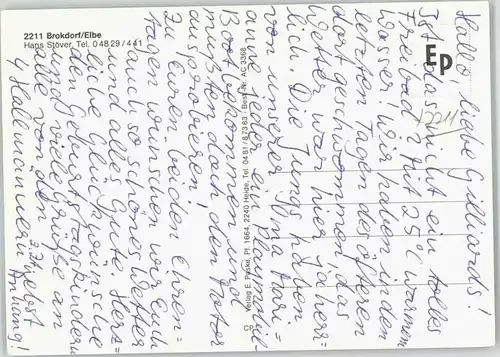 2211 Brokdorf/Elbe
Hans Stöver, Tel. 04829/441
Verlag E. Paske, Pf. 1664, 2240 Heide, Tel. 0481/87383 - Best.-Nr. AC 3368
CP
Hallo liebe Gilliards!
Ist das nicht ein tolles
Freibad? Mit 25°C warmem
Wasser! Wir haben in den
letzten Tagen des öfteren
dort geschwommen, das
Wetter war hier so herr=
lich. Die Jungs haben
von unserer Oma Mari=
anne jeder ein Playmobil-
Boot bekommen und
mußten doch den Motor
ausprobieren!
Zu Euren beiden Ehren=
tagen wünschen wir Euch
auch so schönes Wetter
und alles Gute. Herz=
liche Glückwünsche
den Geburtstagskindern
und viele Grüße an
alle von den
4 Hallmännern
Anhang!